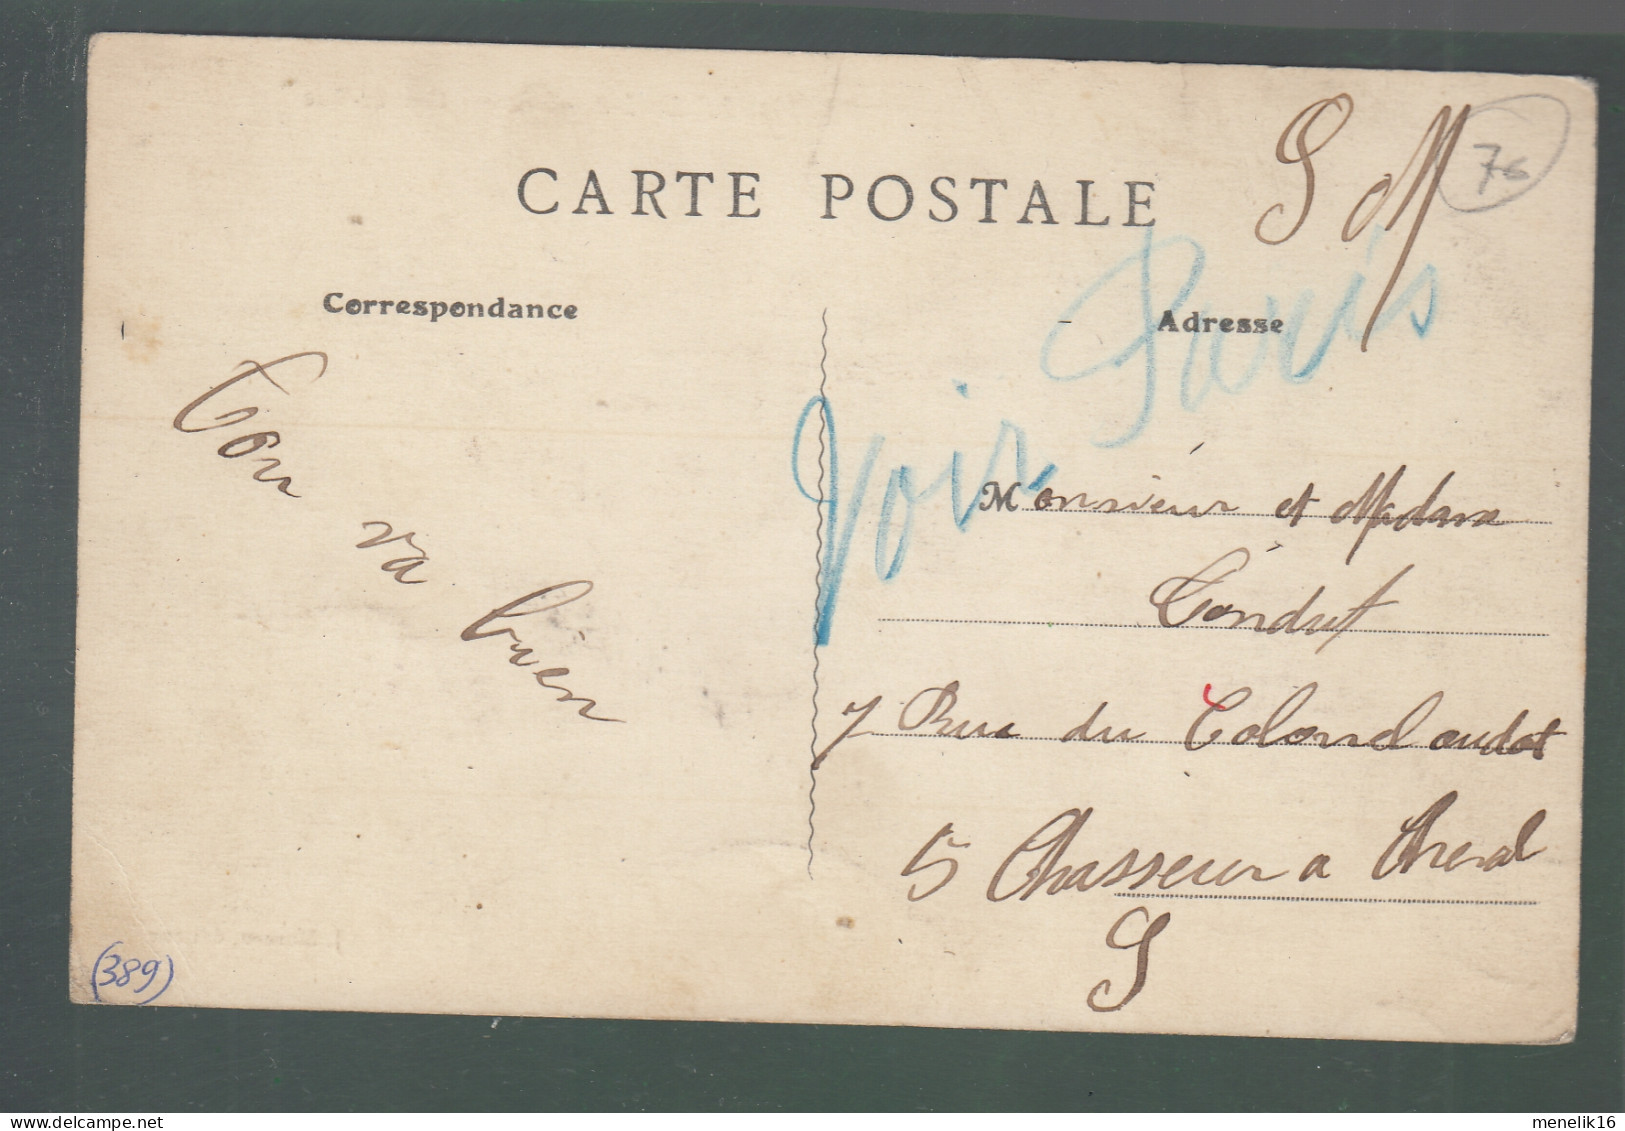 CARTE POSTALE
S M
76
Correspondance
Adresse
Voir Paris
Tou va bien
Monsieur et Madame
Condut
7 Rue du Colonel oudot
5 Chasseur a Cheval
S
(389)
menelik16